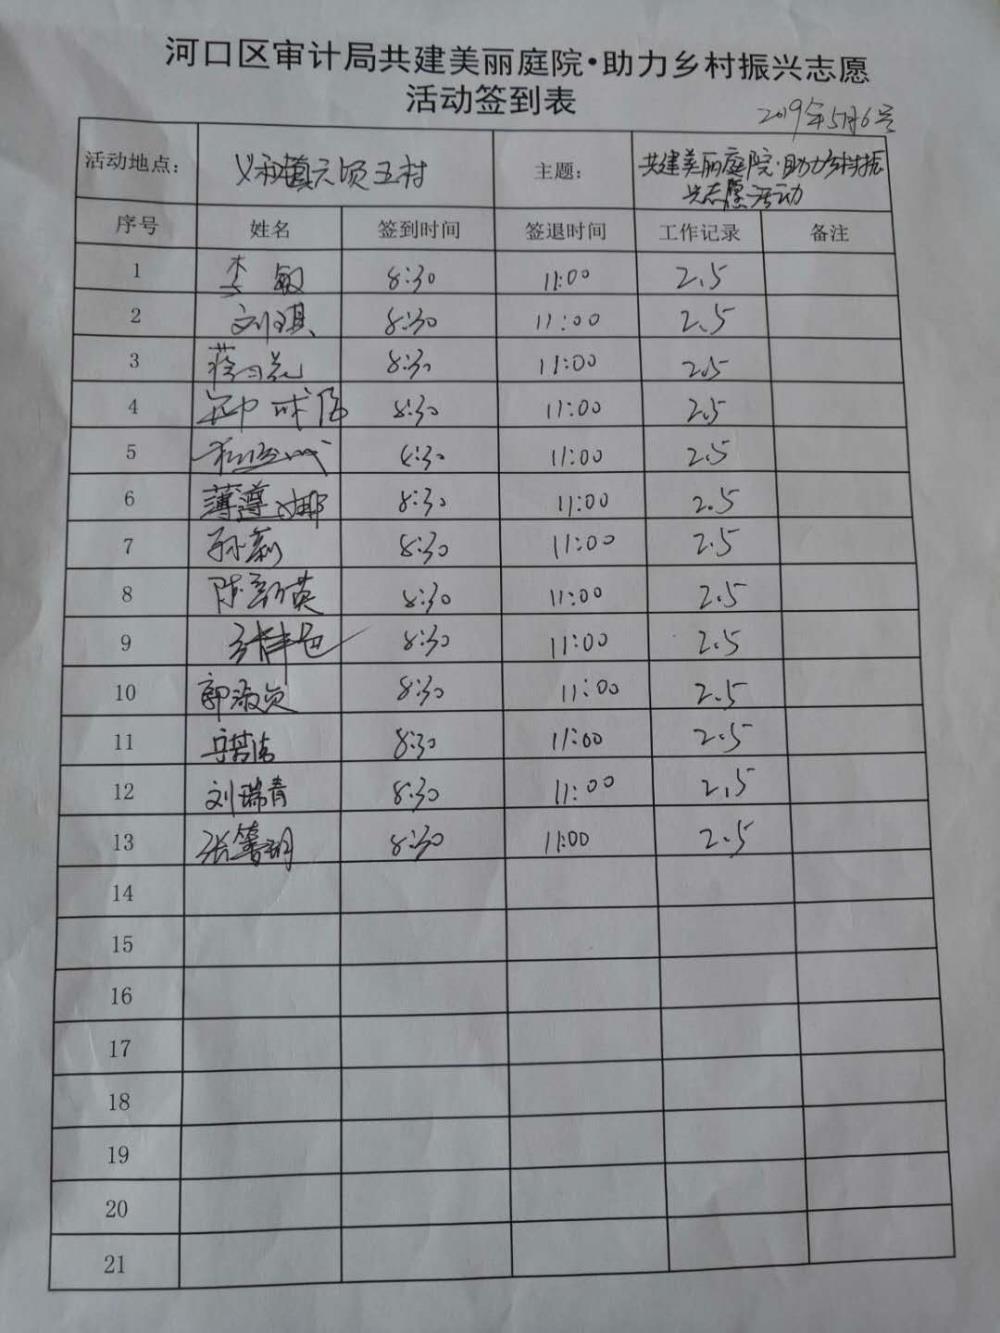 河口区审计局共建美丽庭院·助力乡村振兴志愿
活动签到表
2019年5月6号
活动地点： 义和镇六顷五村 主题： 共建美丽庭院·助力乡村振
兴志愿活动
序号 姓名 签到时间 签退时间 工作记录 备注
1 李敏 8:30 11:00 2.5
2 刘琪 8:30 11:00 2.5
3 8:30 11:00 2.5
4 8:30 11:00 2.5
5 8:30 11:00 2.5
6 薄遵娜 8:30 11:00 2.5
7 孙莉 8:30 11:00 2.5
8 陈新英 8:30 11:00 2.5
9 8:30 11:00 2.5
10 郭淑贞 8:30 11:00 2.5
11 8:30 11:00 2.5
12 刘瑞青 8:30 11:00 2.5
13 8:30 11:00 2.5
14
15
16
17
18
19
20
21